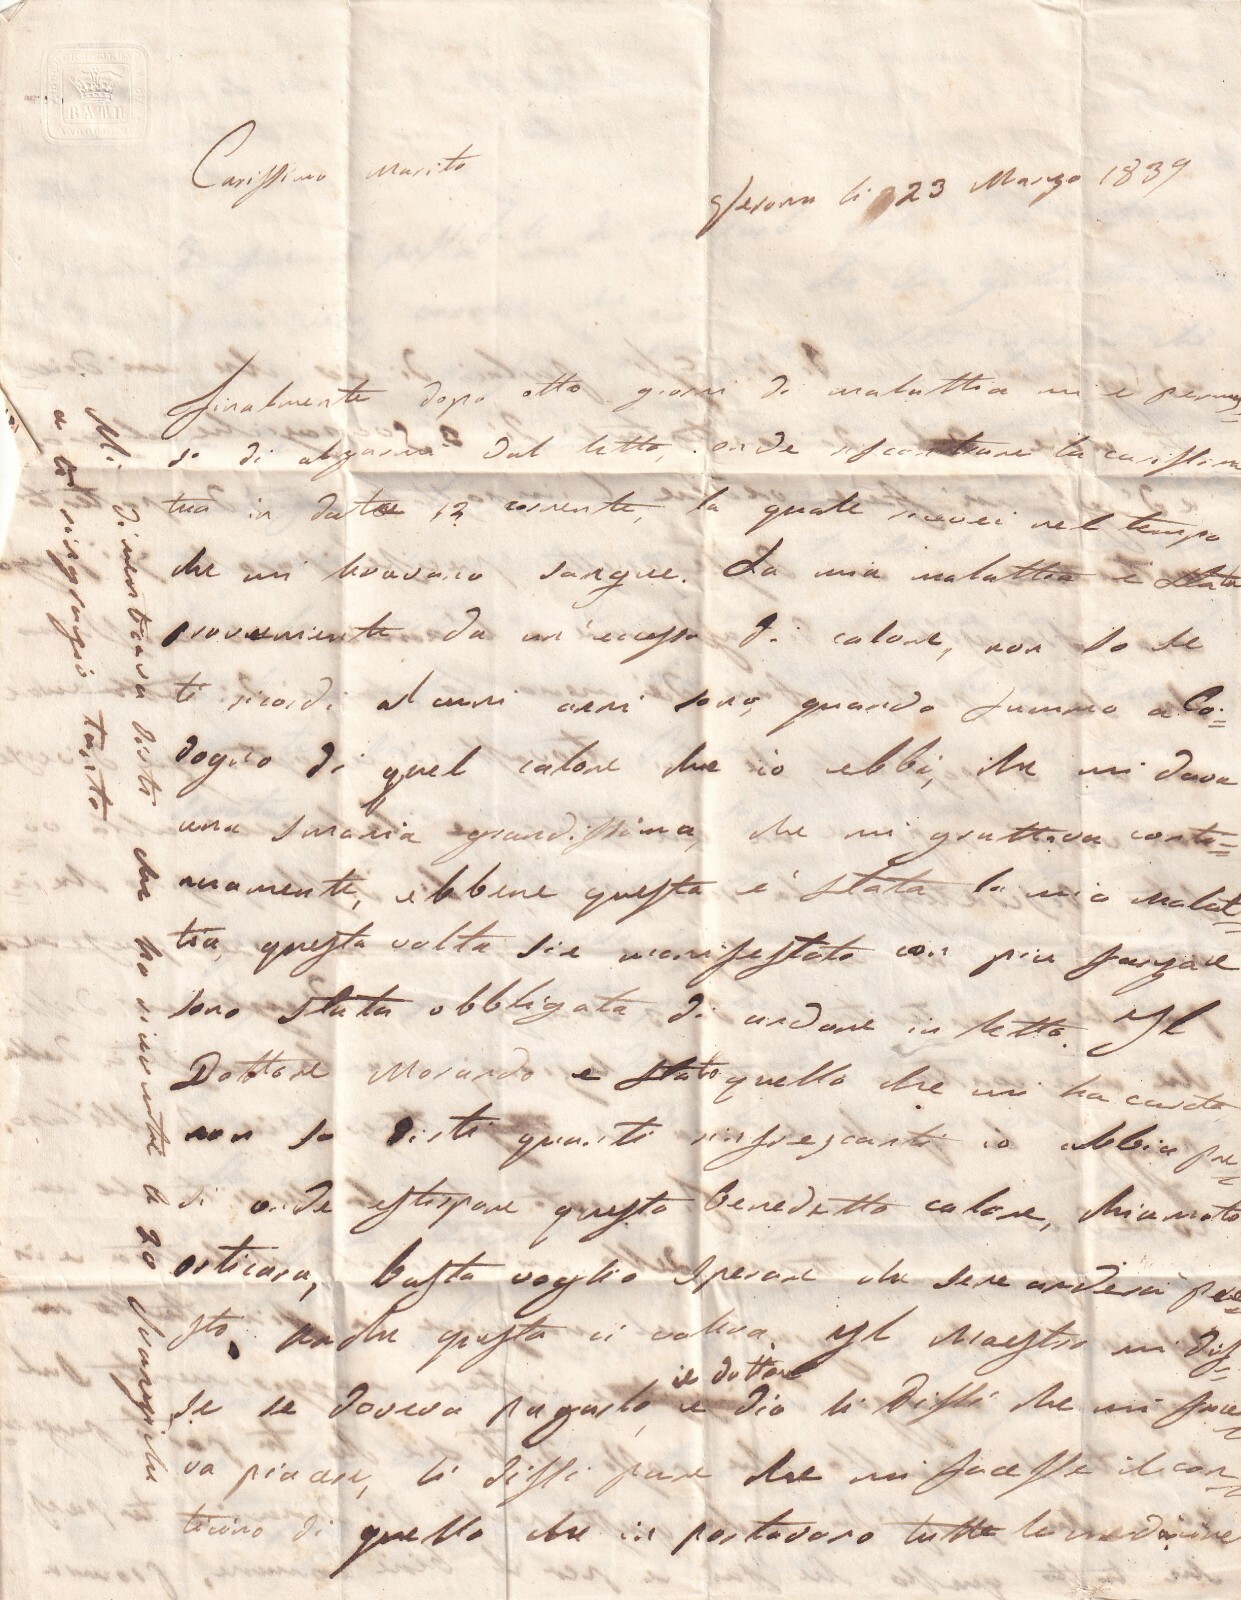 BATH
Carissimo Marito
Verona li 23 Marzo 1839
Finalmente dopo otto giorni di malattia mi è permes=
so di alzarmi dal letto, onde riscontrare la carissima
tua in data 12 corrente, la quale ricevei nel tempo
che mi levavano sangue. La mia malattia è stata
proveniente da un'eccesso di calore, non so se
ti ricordi alcuni anni sono, quando fummo a Co=
dogno di quel calore che io ebbi, che mi dava
una smania grandissima, che mi grattava conti=
nuamente, ebbene questa è stata la mia malat=
tia, questa volta sie manifestato con più forza e
sono stata obbligata di andare in letto. Il
Dottore Morando e stato quello che mi ha curata,
non so dirti quanti rinfrescanti io abbia pre=
si onde estirpare questo benedetto calore, chiamato
orticara, basta voglio sperare che sene anderà pre=
sto. Anche questa ci voleva. Il Maestro mi dis=
se se doveva pagarlo, il dottore e dio li dissi che mi face=
va piacere, li dissi pure che mi facesse il con=
ticino di quello che in portavano tutte le medicine
Mi dimenticava dirti che ho ricevute le 20 Svanziche
e ti ringrazio tanto